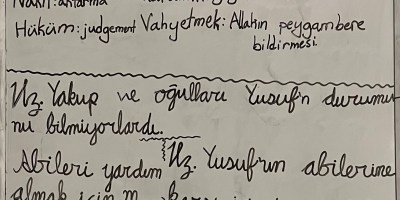 Nakil: aktarma
Hüküm: judgement Vahyetmek: Allahın peygambere
bildirmesi
Hz. Yakup ve oğulları Yusuf'n durumu-
nu bilmiyorlardı.
Abileri yardım
Hz. Yusuf'un abilerine
almak için